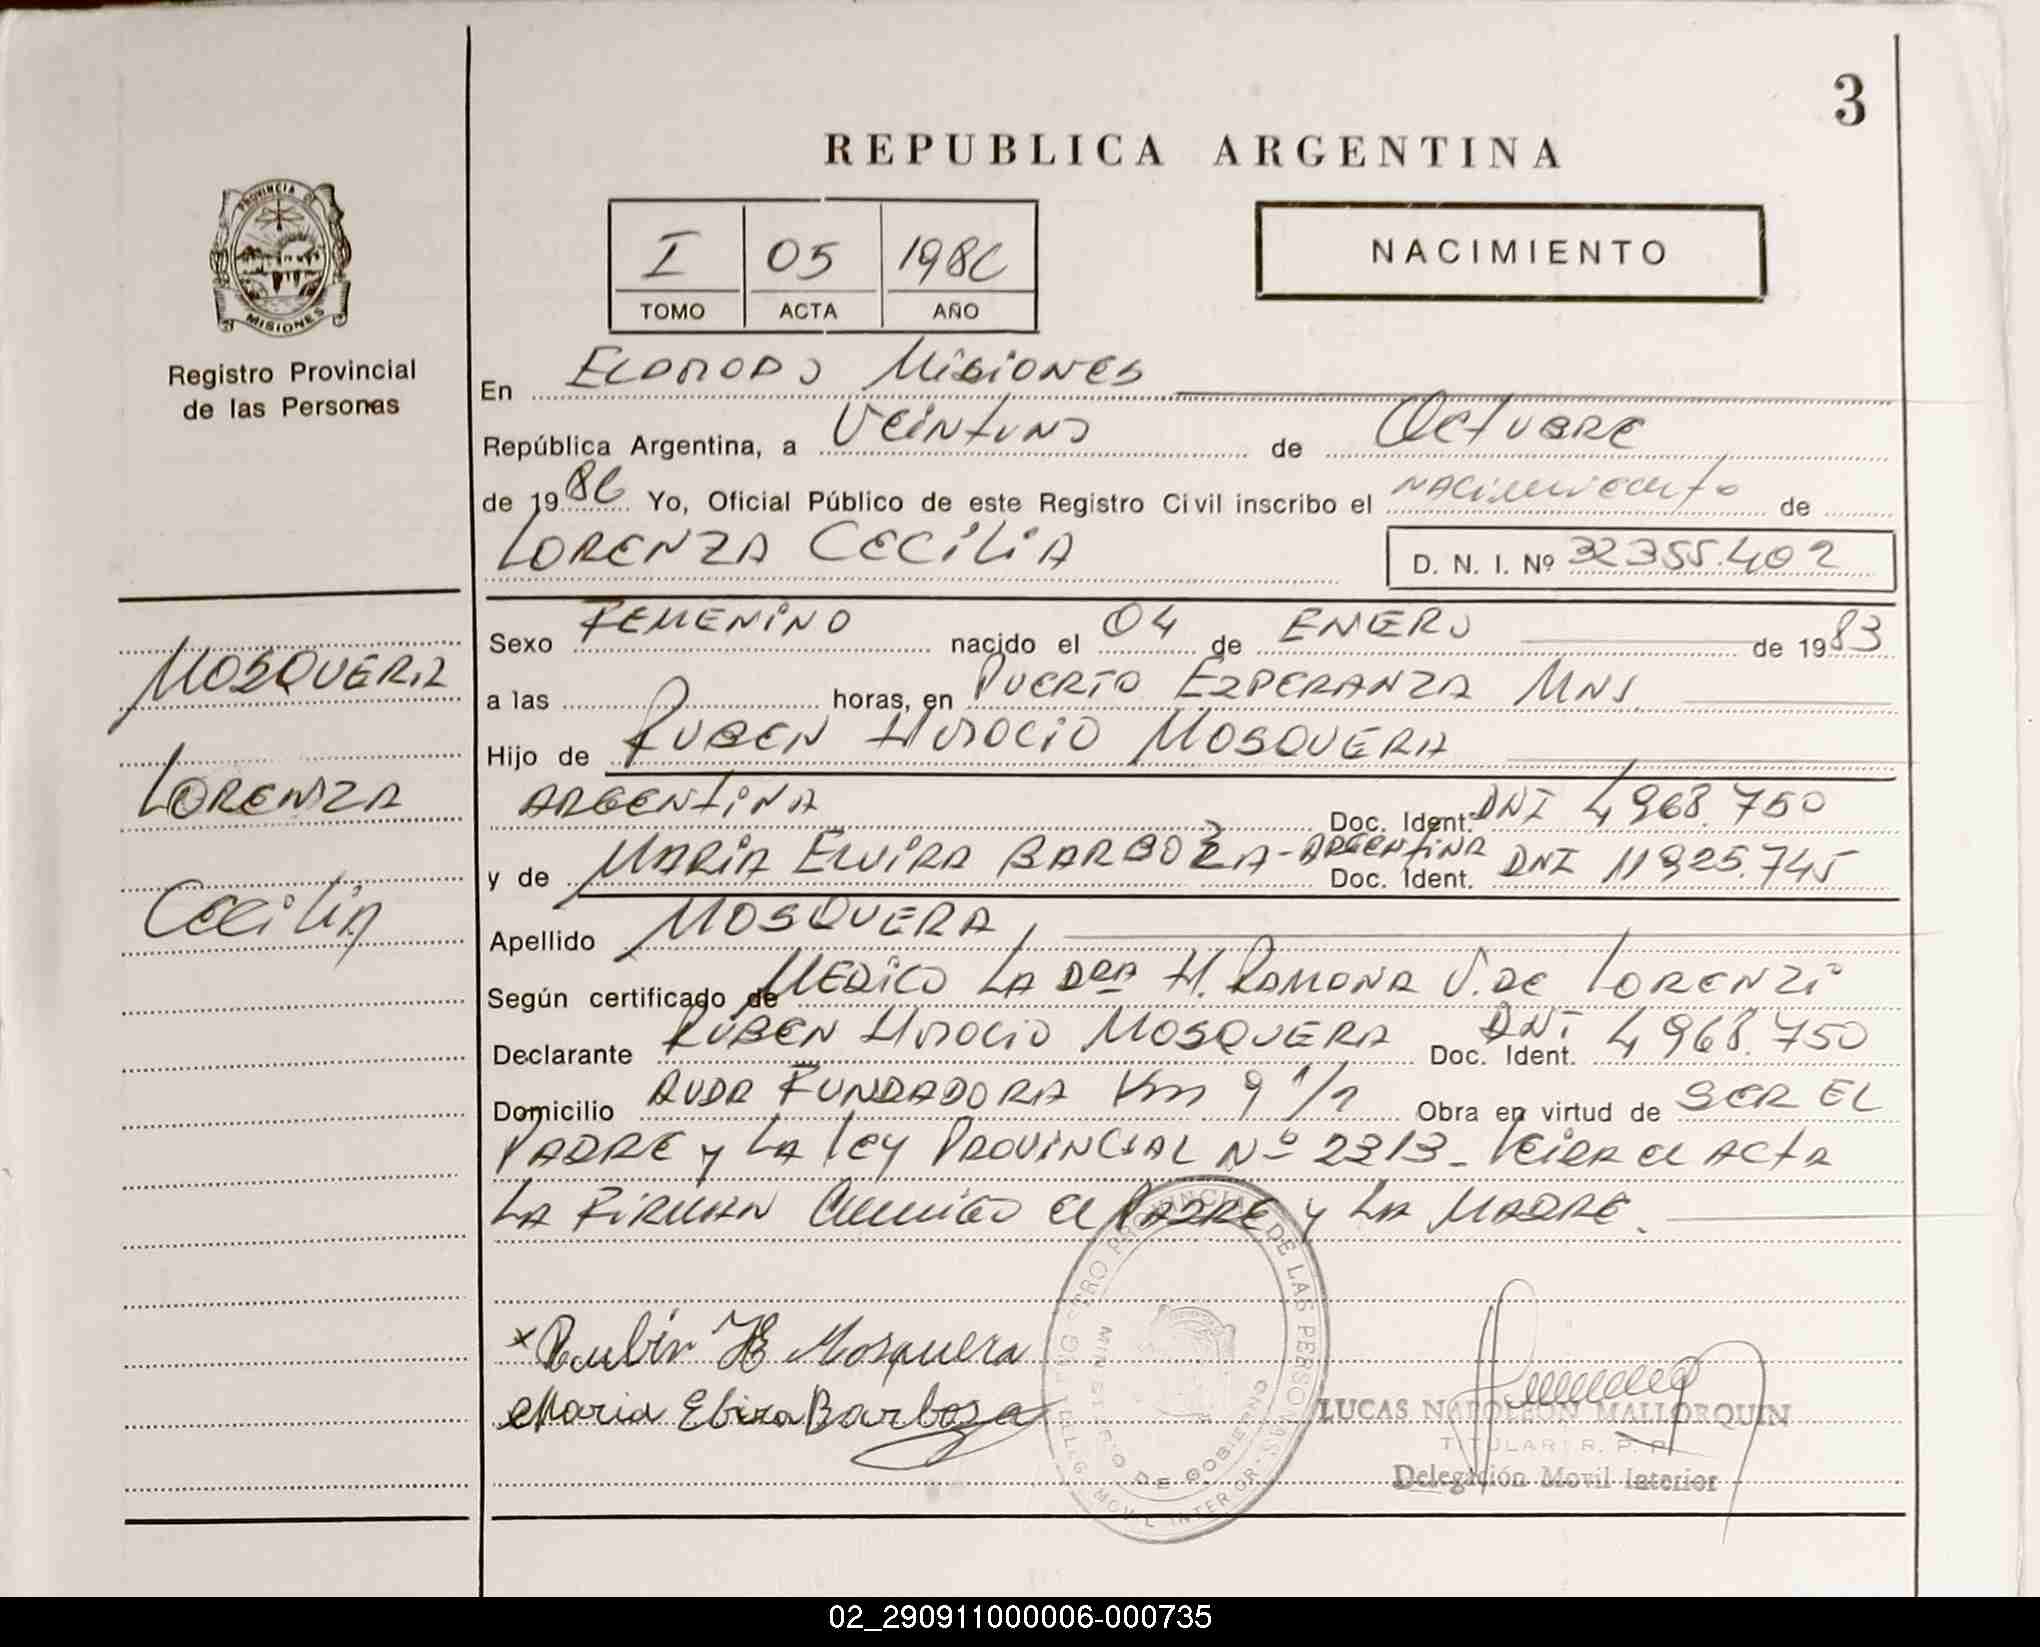 3
REPUBLICA ARGENTINA
PROVINCIA DE
MISIONES
Registro Provincial
de las Personas
I 05 1986
TOMO ACTA AÑO
NACIMIENTO
En ELDORADO Misiones
República Argentina, a VEINTUNO de OCTUBRE
de 1986 Yo, Oficial Público de este Registro Civil inscribo el nacimiento de
LORENZA CECILIA D. N. I. Nº 32355.402
Sexo FEMENINO nacido el 04 de ENERO de 1983
a las horas, en PUERTO ESPERANZA MNS.
Hijo de RUBEN HORACIO MOSQUERA
ARGENTINA Doc. Ident. DNI 4968.750
y de MARIA ELVIRA BARBOZA - ARGENTINA Doc. Ident. DNI 11925.745
Apellido MOSQUERA
Según certificado de MEDICO LA DRA H. RAMONA V. DE LORENZI
Declarante RUBEN HORACIO MOSQUERA Doc. Ident. DNI 4968.750
Domicilio AVDA FUNDADORA Km 9 Obra en virtud de SER EL
PADRE y LA ley PROVINCIAL Nº 2313 - leida el ACTA
LA FIRMAN conmigo el PADRE y LA MADRE.
MOSQUERA
LORENZA
Cecilia
x Rubin H Mosquera
Maria Elviza Barboza
REGISTRO PROVINCIAL DE LAS PERSONAS
MINISTERIO DE GOBIERNO
DELEG. MOVIL INTERIOR
LUCAS NAPOLEON MALLORQUIN
TITULAR R. P. P.
Delegación Movil Interior
02_290911000006-000735